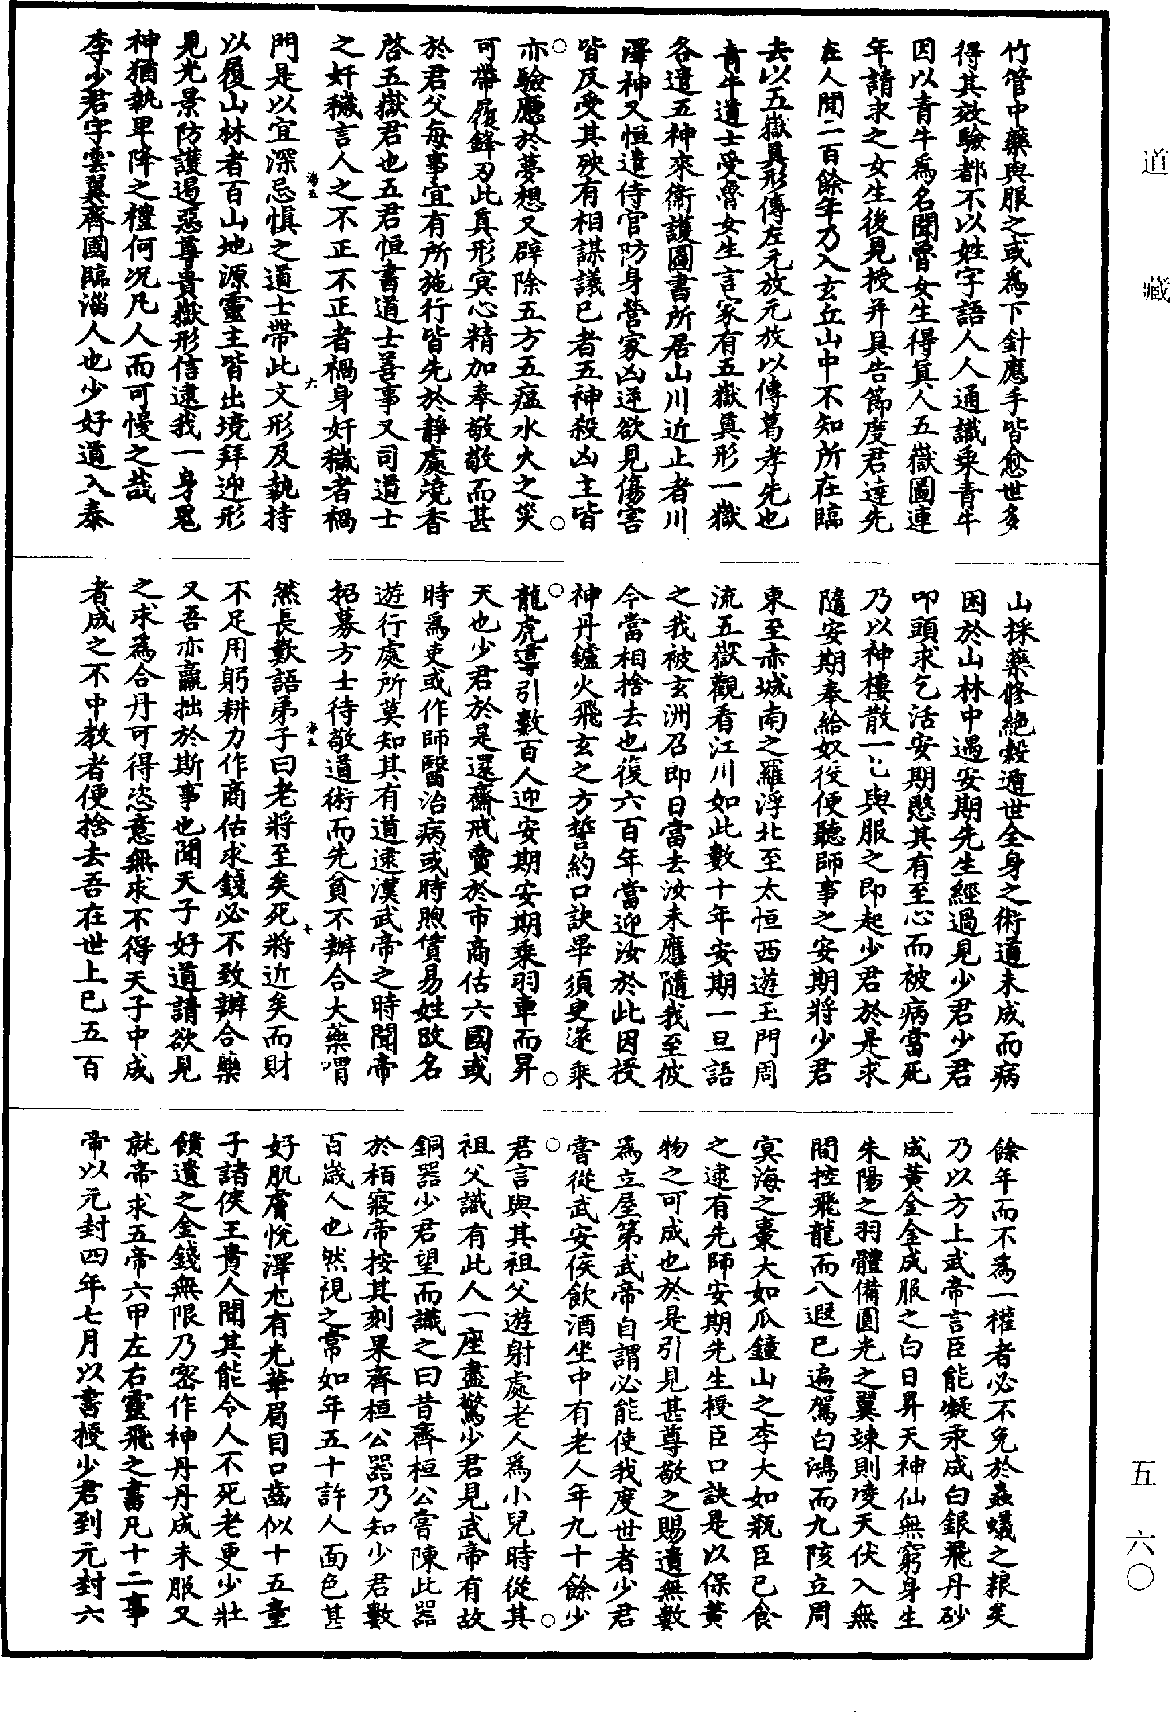 道藏
五 六〇
竹管中藥與服之或為下針應手皆愈世多
得其效驗都不以姓字語人人通識乘青牛
因以青牛為名聞魯女生得真人五嶽圖連
年請求之女生後見授并具告節度君達先
在人間一百餘年乃入玄丘山中不知所在臨
去以五嶽真形傳左元放元放以傳葛孝先也
青牛道士受魯女生言家有五嶽真形一嶽
各遣五神來衛護圖書所居山川近止者川
澤神又恒遣侍官防身營家凶逆欲見傷害
皆反受其殃有相謀議已者五神殺凶主皆
亦驗應於夢想又辟除五方五瘟水火之災
可帶履鋒刃此真形冥心精加奉敬敬而甚
於君父每事宜有所施行皆先於靜處燒香
啓五嶽君也五君恒書道士善事又司道士
之奸穢言人之不正不正者禍身奸穢者禍
海五
六
門是以宜深忌慎之道士帶此文形及執持
以履山林者百山地源靈主皆出境拜迎形
見光景防護遏惡尊貴嶽形信逮我一身鬼
神猶執卑降之禮何況凡人而可慢之哉
李少君字雲翼齊國臨淄人也少好道入泰
山採藥修絕穀遁世全身之術道未成而病
困於山林中遇安期先生經過見少君少君
叩頭求乞活安期愍其有至心而被病當死
乃以神樓散一匕與服之即起少君於是求
隨安期奉給奴役便聽師事之安期將少君
東至赤城南之羅浮北至太恒西遊玉門周
流五嶽觀看江川如此數十年安期一旦語
之我被玄洲召即日當去汝未應隨我至彼
今當相捨去也復六百年當迎汝於此因授
神丹鑪火飛玄之方誓約口訣畢須臾遂乘
龍虎導引數百人迎安期安期乘羽車而昇
天也少君於是還齋戒賣於市商估六國或
時為吏或作師醫治病或時煦賃易姓改名
遊行處所莫知其有道逮漢武帝之時聞帝
招募方士待敬道術而先貧不辦合大藥喟
海五
七
然長歎語弟子曰老將至矣死將近矣而財
不足用躬耕力作商估求錢必不致辦合藥
又吾亦羸拙於斯事也聞天子好道請欲見
之求為合丹可得恣意無求不得天子中成
者成之不中教者便捨去吾在世上已五百
餘年而不為一權者必不免於蟲蟻之粮矣
乃以方上武帝言臣能凝汞成白銀飛丹砂
成黃金金成服之白日昇天神仙無窮身生
朱陽之羽體備圓光之翼竦則凌天伏入無
間控飛龍而八遐已遍駕白鴻而九陔立周
冥海之棗大如瓜鐘山之李大如瓶臣已食
之逮有先師安期先生授臣口訣是以保黃
物之可成也於是引見甚尊敬之賜遺無數
為立屋第武帝自謂必能使我度世者少君
嘗從武安侯飲酒坐中有老人年九十餘少
君言與其祖父遊射處老人為小兒時從其
祖父識有此人一座盡驚少君見武帝有故
銅器少君望而識之曰昔齊桓公嘗陳此器
於栢寢帝按其刻果齊桓公器乃知少君數
百歲人也然視之常如年五十許人面色甚
好肌膚悅澤尤有光華眉目口齒似十五童
子諸侯王貴人聞其能令人不死老更少壯
饋遺之金錢無限乃密作神丹丹成未服又
就帝求五帝六甲左右靈飛之書凡十二事
帝以元封四年七月以書授少君到元封六